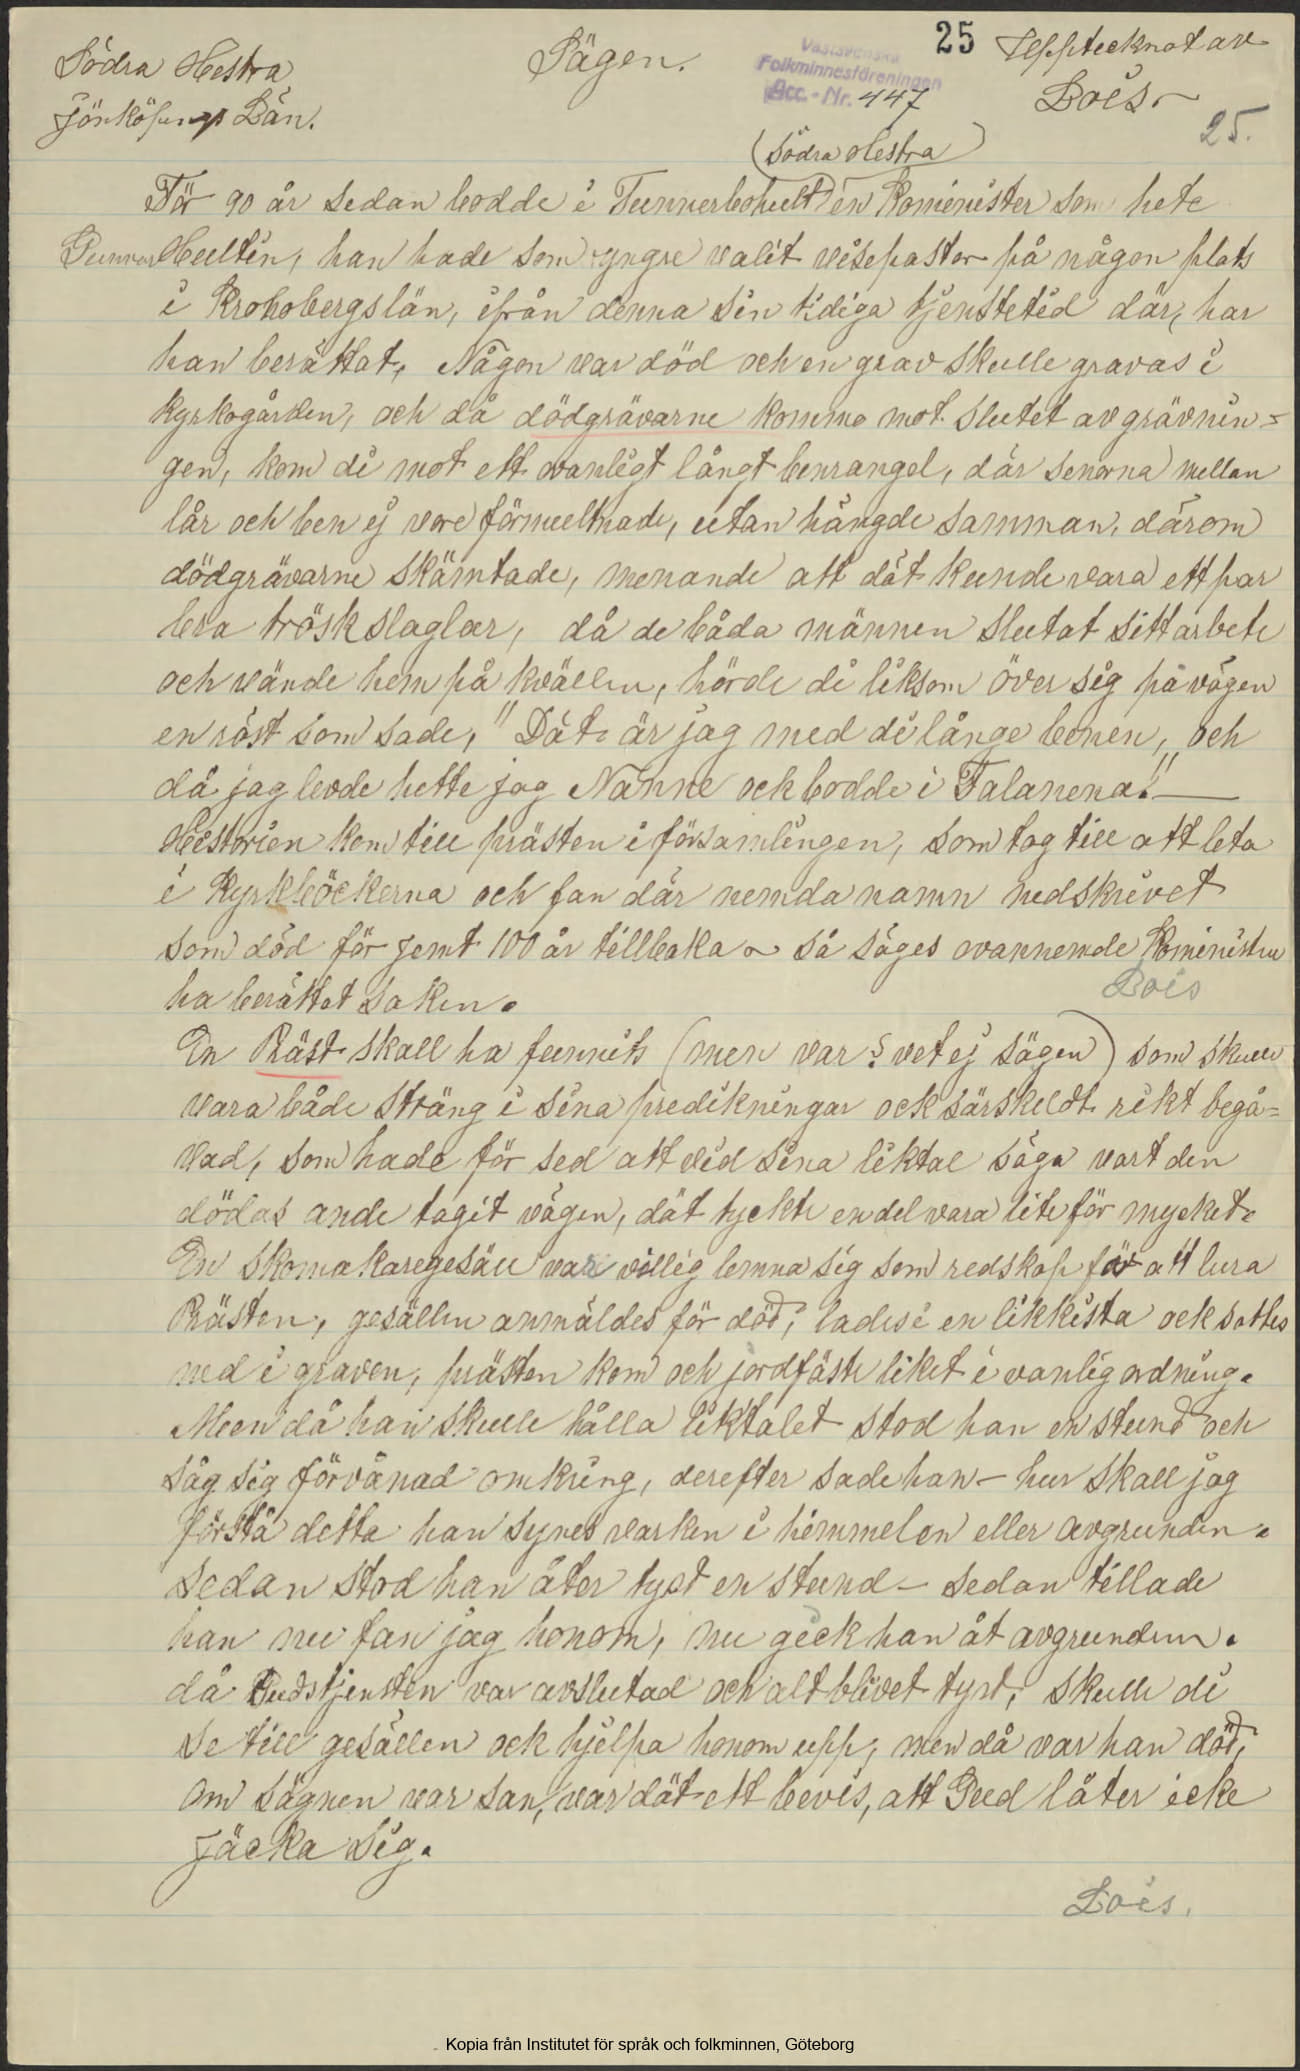 Södra Hestra
Jönköpings Län.
Sägen.
Västsvenska
Folkminnesföreningen
Acc.-Nr. 447
25
Upptecknat av
Lois
25.
(Södra Hestra)
För 90 år sedan bodde i Tunnerbohult en Kominister som hete
Gunnar Hultin, han hade som yngre valit visepastor på någon plats
i Kronobergslän, ifrån denna sin tidiga tjenstetid där, har
han berättat, Någon var död och en grav skulle gravas i
Kyrkogården, och då dödgrävarne komma mot slutet av grävnin=
gen, kom di mot ett ovanligt långt benrangel, där senorna mellan
lår och ben ej vore förmultnade, utan hängde samman, därom
dödgrävarne skämtade, menande att dät kunde vara ett par
bra tröskslaglar, då de båda männen slutat sitt arbete
och vände hem på kvällen, hörde di liksom över sig på vägen
en röst som sade, "Dät är jag med di långe benen, och
då jag levde hette jag Nanne ock bodde i Talanena!" —
Historien kom till prästen i församlingen, som tog till att leta
i Kyrkböckerna och fan där nemda namn nedskrivet
som död för jemt 100 år tillbaka så säges ovannemde Kominister
ha berättat saken.
Lois
En Präst skall ha funnits (men var? vet ej sägen) som skulle
vara både sträng i sina predikningar ock särskeldt rikt begå=
vad, som hade för sed att vid sina liktal säga vart den
dödas ande tagit vägen, dät tyckte en del vara lite för mycket.
En skomakaregesäll var villig lemna sig som redskap för att lura
Prästen, gesällen anmäldes för död, lades i en likkista ock sattes
ned i graven, prästen kom och jordfäste liket i vanlig ordning.
Men då han skulle hålla liktalet stod han en stund och
såg sig förvånad omkring, derefter sade han — hur skall jag
förstå detta han synes varken i himmelen eller avgrunden.
sedan stod han åter tyst en stund — sedan tillade
han nu fan jag honom, nu gick han åt avgrunden.
då Gudstjensten var avslutad och alt blivet tyst, skulle di
se till gesällen ock hjelpa honom upp, men då var han död,
om sägnen var san, var dät ett bevis, att Gud låter icke
jäcka sig.
Lois.
Kopia från Institutet för språk och folkminnen, Göteborg